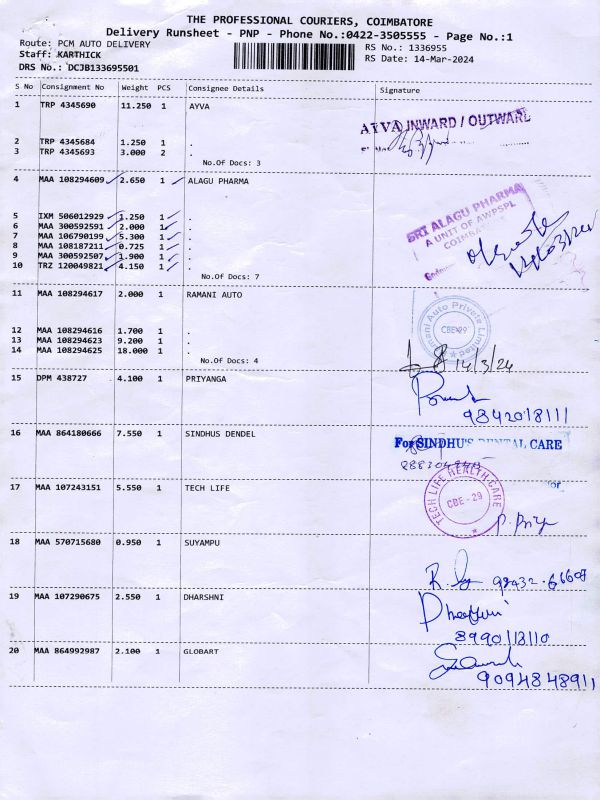 THE PROFESSIONAL COURIERS, COIMBATORE
Delivery Runsheet - PNP - Phone No.:0422-3505555 - Page No.:1
Route: PCM AUTO DELIVERY
RS No.: 1336955
Staff: KARTHICK
RS Date: 14-Mar-2024
DRS No.: DCJB133695501
S No Consignment No Weight PCS Consignee Details Signature
1 TRP 4345690 11.250 1 AYVA
AYVA INWARD / OUTWARD
2 TRP 4345684 1.250 1 .
3 TRP 4345693 3.000 2 .
No.Of Docs: 3
4 MAA 108294609 2.650 1 ALAGU PHARMA
SRI ALAGU PHARMA
A UNIT OF AWPSPL
5 IXM 506012929 1.250 1 .
6 MAA 300592591 2.000 1 .
7 MAA 106790199 5.300 1 .
8 MAA 108187211 0.725 1 .
9 MAA 300592507 1.900 1 .
10 TRZ 120049821 4.150 1 .
No.Of Docs: 7
11 MAA 108294617 2.000 1 RAMANI AUTO
Auto Private Limited
CBE-29
12 MAA 108294616 1.700 1 .
13 MAA 108294623 9.200 1 .
14 MAA 108294625 18.000 1 .
No.Of Docs: 4
14/3/24
15 DPM 438727 4.100 1 PRIYANGA
9842018111
16 MAA 864180666 7.550 1 SINDHUS DENDEL
For SINDHU'S DENTAL CARE
17 MAA 107243151 5.550 1 TECH LIFE
TECH LIFE HEALTH CARE
CBE - 29
for
P. Priya
18 MAA 570715680 0.950 1 SUYAMPU
19 MAA 107290675 2.550 1 DHARSHNI
20 MAA 864992987 2.100 1 GLOBART
9094848911